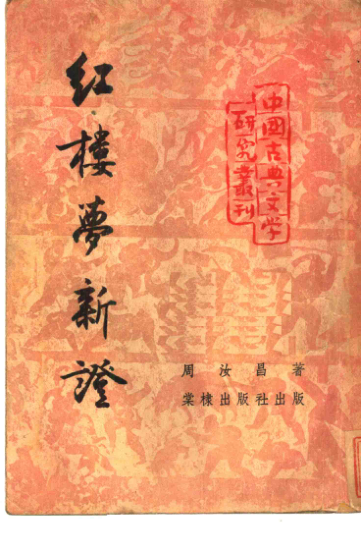 红楼夢新證
中國古典文学
研究叢刊
周汝昌 著
棠棣出版社出版